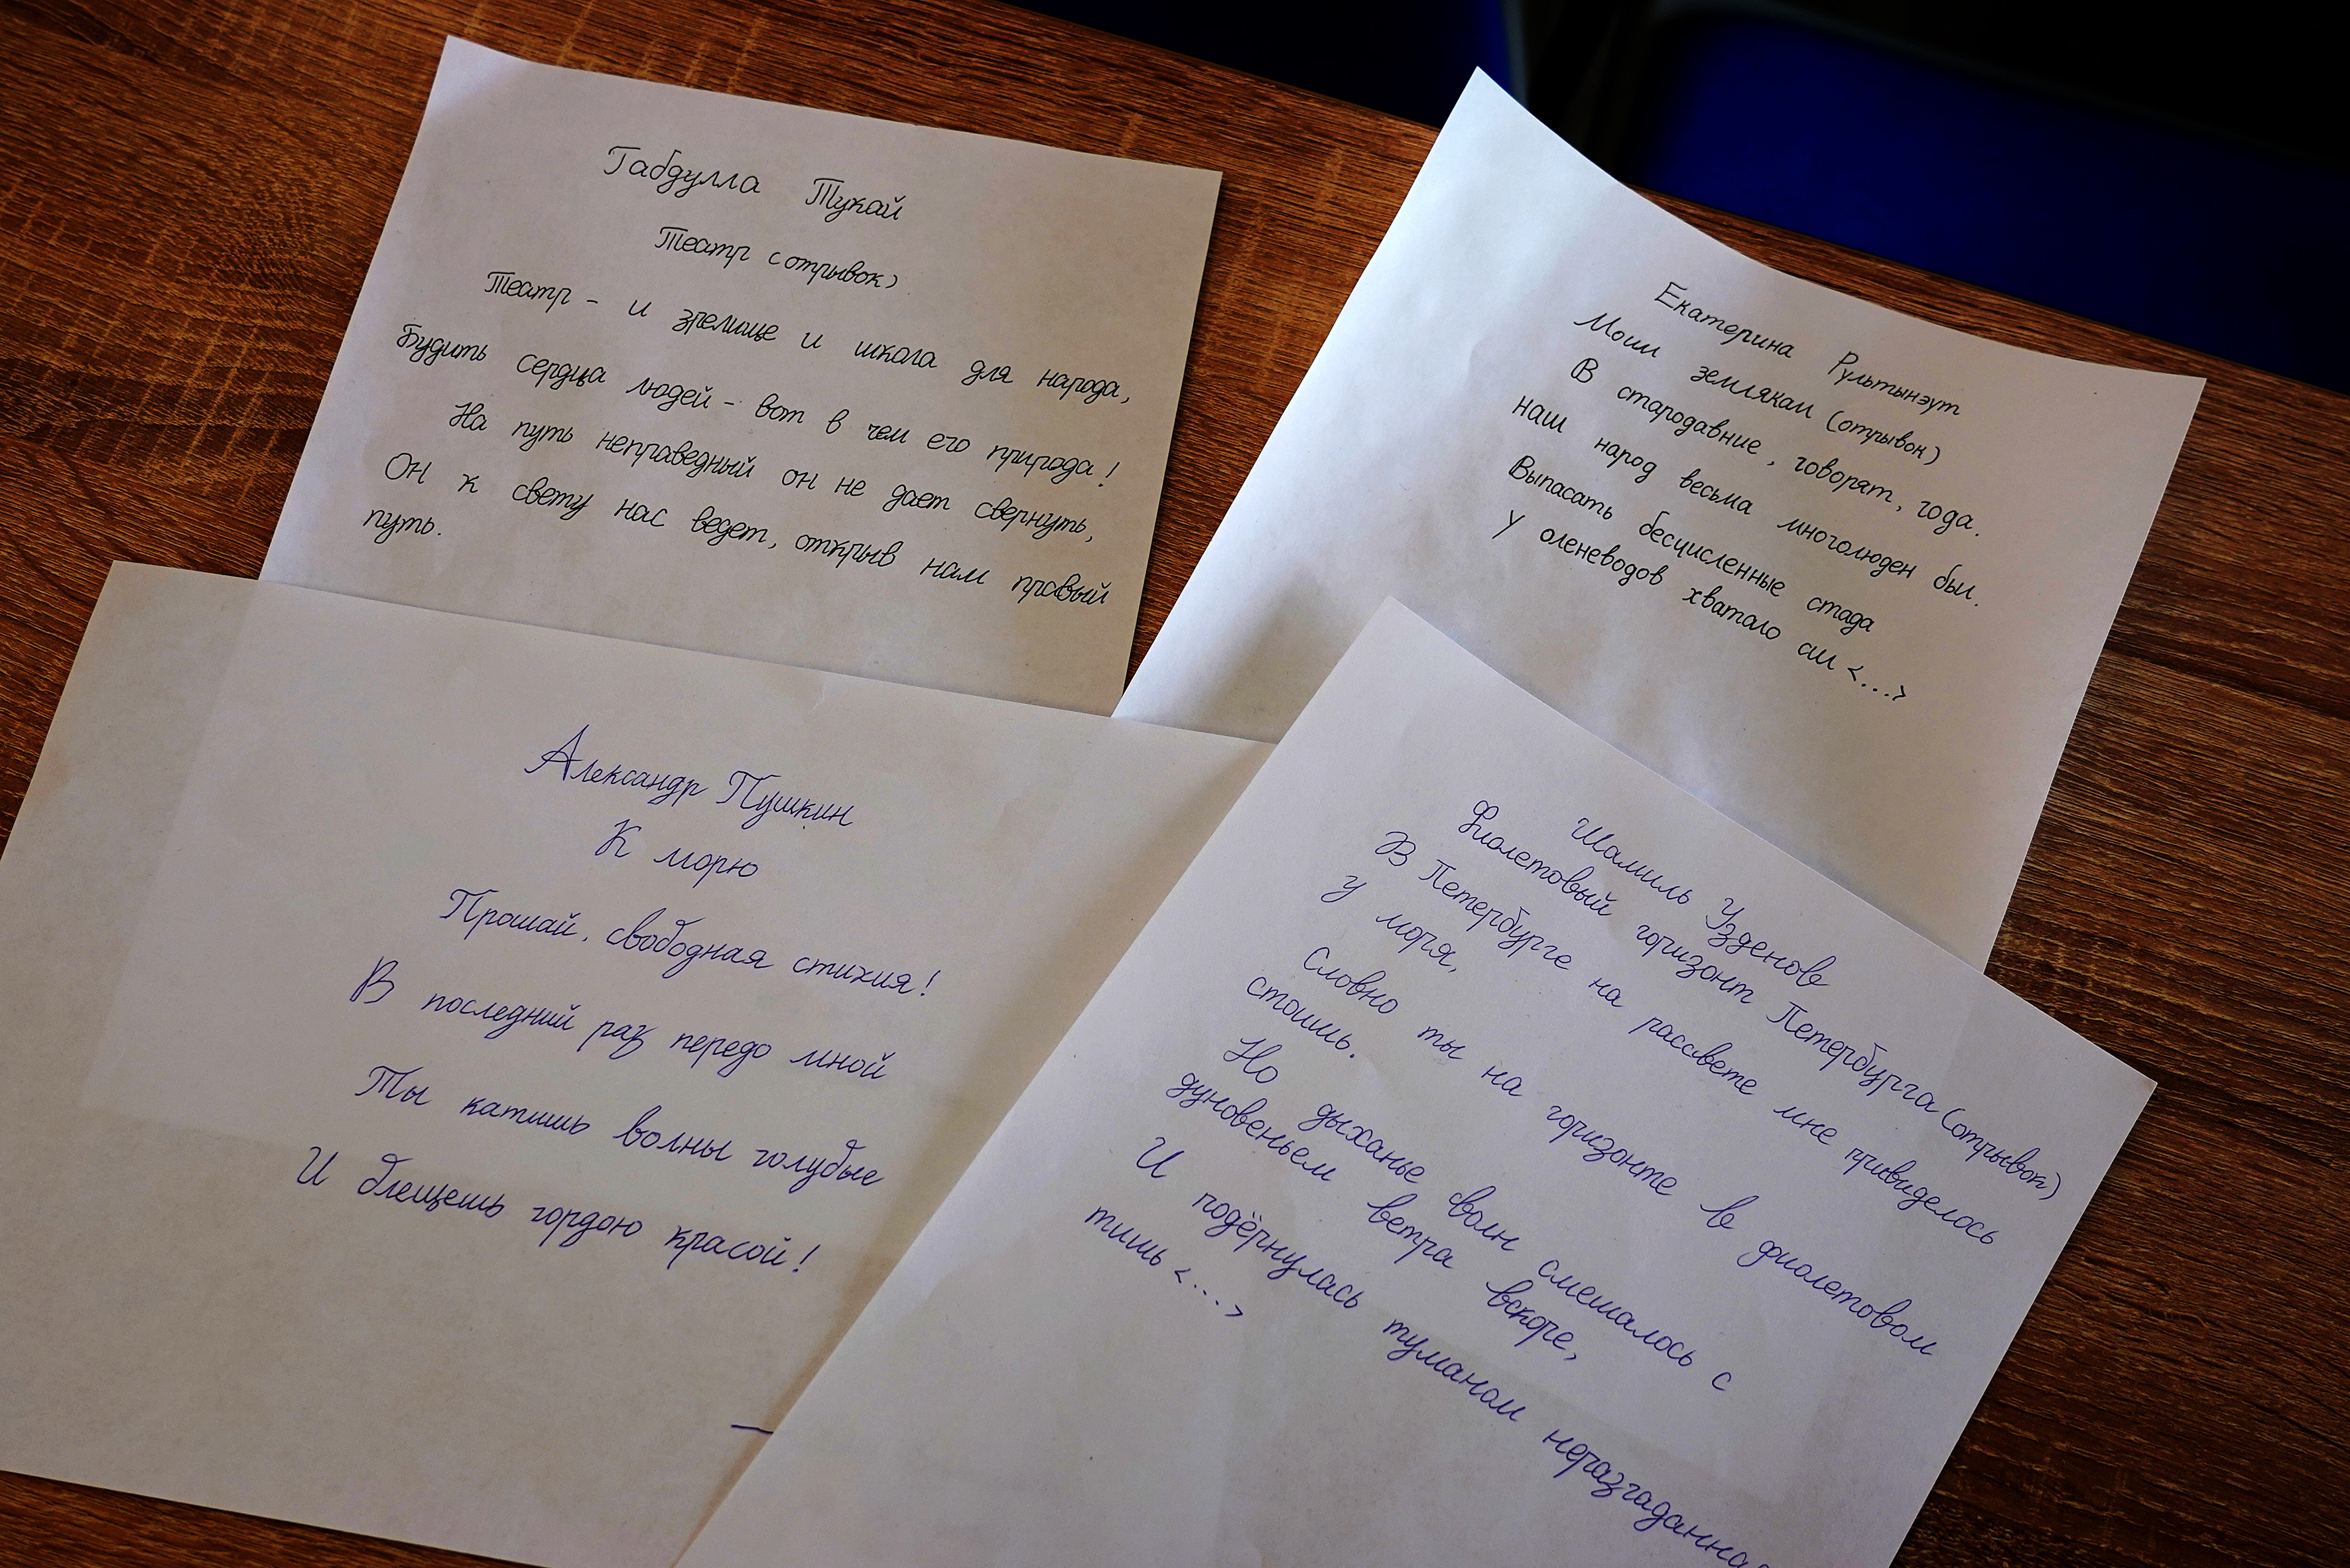 Габдулла Тукай
Театр (отрывок)
Театр - и зрелище и школа для народа,
Будить сердца людей - вот в чем его природа!
На путь неправедный он не дает свернуть,
Он к свету нас ведет, открыв нам правый
путь.
Екатерина Рультынэут
Моим землякам (отрывок)
В стародавние, говорят, года.
наш народ весьма многолюден был.
Выпасать бесчисленные стада
У оленеводов хватало сил <...>
Александр Пушкин
К морю
Прощай, свободная стихия!
В последний раз передо мной
Ты катишь волны голубые
И блещешь гордою красой!
Шамиль Узденов
Фиолетовый горизонт Петербурга (отрывок)
В Петербурге на рассвете мне привиделось
у моря,
Словно ты на горизонте в фиолетовом
стоишь.
Но дыханье волн смешалось с
дуновеньем ветра вскоре,
И подёрнулась туманом неразгаданная
тишь <...>